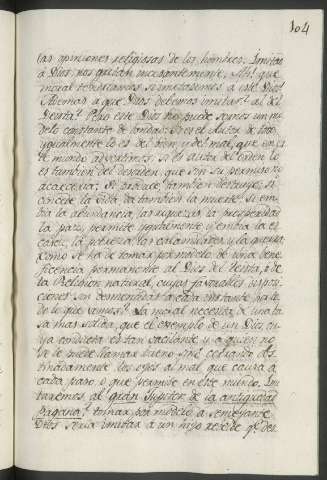 104
las opiniones religiosas de los hombres. Imitad
à Dios: nos gritan incesantemente. Ah! que
moral tendriamos si imitasemos à este Dios!
Ademas à que Dios debemos imitar? al del
Deista? Pero este Dios no puede sernos un mo-
delo constante de bondad. Si es el Autor de todo
ygualmente lo es del bien, y del mal, que en es-
te mundo advertimos. Si el autor del orden lo
es tambien del desorden, que sin su permiso no
acaeceria: Si produce, tambien destruye: si
concede la vida, da tambien la muerte: si em-
bia la abundancia, las riquezas, la prosperidad
la paz, permite igualmente, y embia la es-
casez, la pobreza, las calamidades, y la guerra.
Como se ha de tomar por modelo de una bene-
ficencia permanente al Dios del Teista, ò de
la Religion natural, cuyas favorables disposi-
ciones son desmentidas à cada instante por to-
do lo que vemos? La moral necesita de una ba-
sa mas solida, que el exemplo de un Dios cu-
ya conducta es tan vacilante, y a quien no
se le puede llamar bueno, sino cerrando obs-
tinadamente los ojos al mal que causa à
cada paso, o que permite en este mundo. Imi-
taremos al gran Jupiter de la antiguedad
Pagana? tomar por modelo à semejante
Dios seria imitar à un hijo rebelde qe. des-